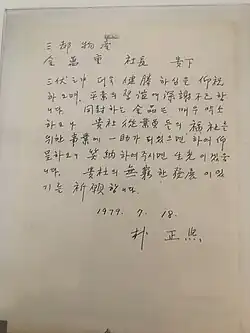 三部物産
金 至 社長 貴下
三伏之中 더욱 健勝 하심을 仰祝
하오며, 平素의 을 深謝不己합
니다. 同封하는 金品은 매우 약소
하오나 貴社 從業員들의 福祉를
위한 事業에 一助가 되었으면 하여 仰
呈하오니 笑納하여주시면 生光이겠습
니다. 貴社의 無窮한 發展이 있
기를 祈願합니다.
1979. 7. 18.
朴 正 熙